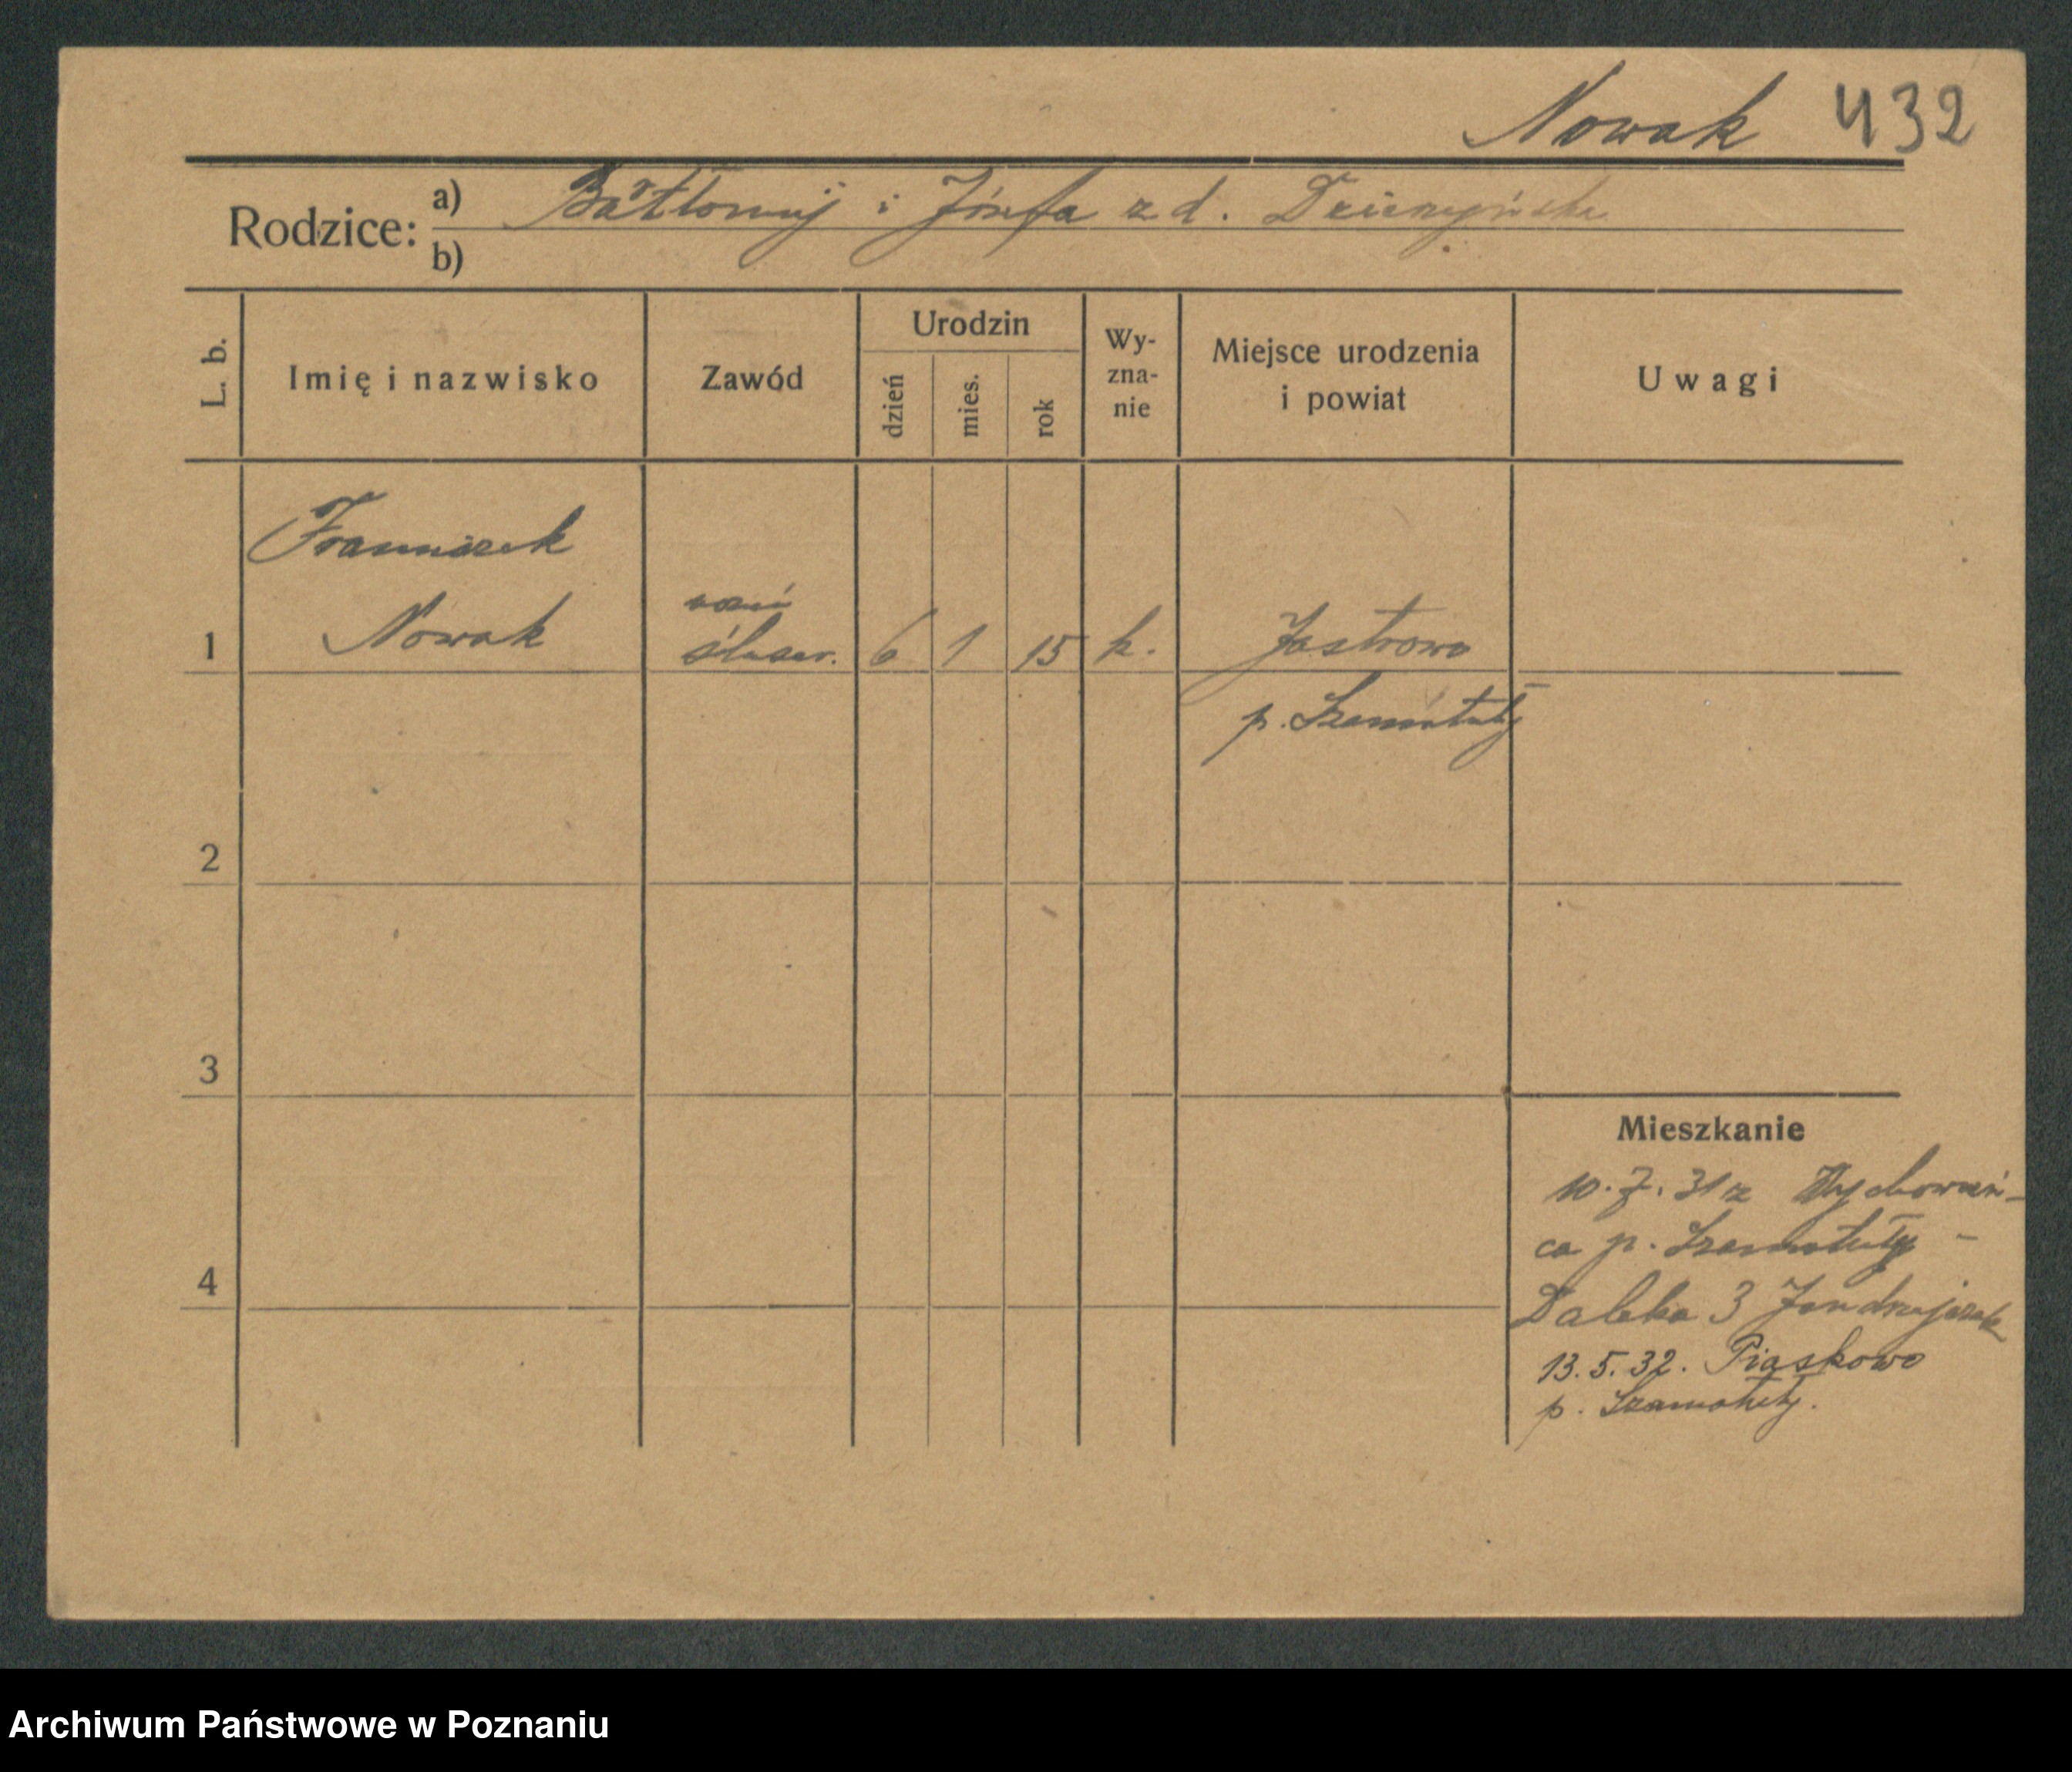 Nowak 432
Rodzice: a) Bartłomiej i Józefa z d.
b)
L. b. Imię i nazwisko Zawód Urodzin dzień mies. rok Wy-zna-nie Miejsce urodzenia i powiat Uwagi
Franciszek
1 Nowak uczeń ślusar. 6 1 15 k. Jastrowo
p. Szamotuły
2
3
Mieszkanie
10.7.31 z
ca p. Szamotuły -
4
Daleka 3
13.5.32. Piaskowo
p. Szamotuły.
Archiwum Państwowe w Poznaniu